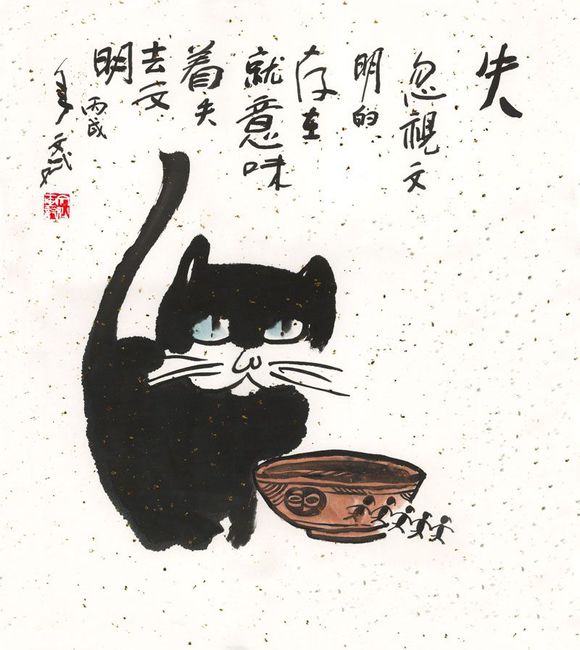 失
忽視文
明的
存在
就意味
着失
去文
明
丙戌